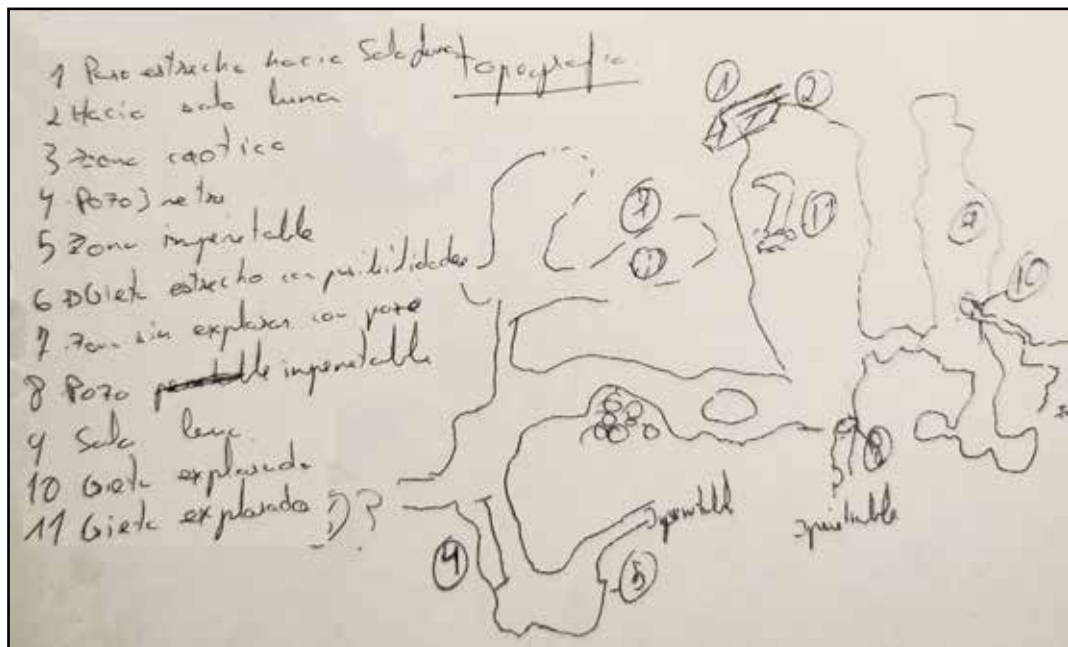 topografia
1 Paso estrecho hacia Sala luna
2 Hacia sala luna
3 Zona caotica
4 Pozo 3 metro
5 Zona impenetable
6 Gieta estrecho con posibilidades
7 Zona sin explorar con pozo
8 Pozo impenetable
9 Sala luna
10 Gieta explorada
11 Gieta explorada ??
1
2
7
11
11
9
10
8
4
5